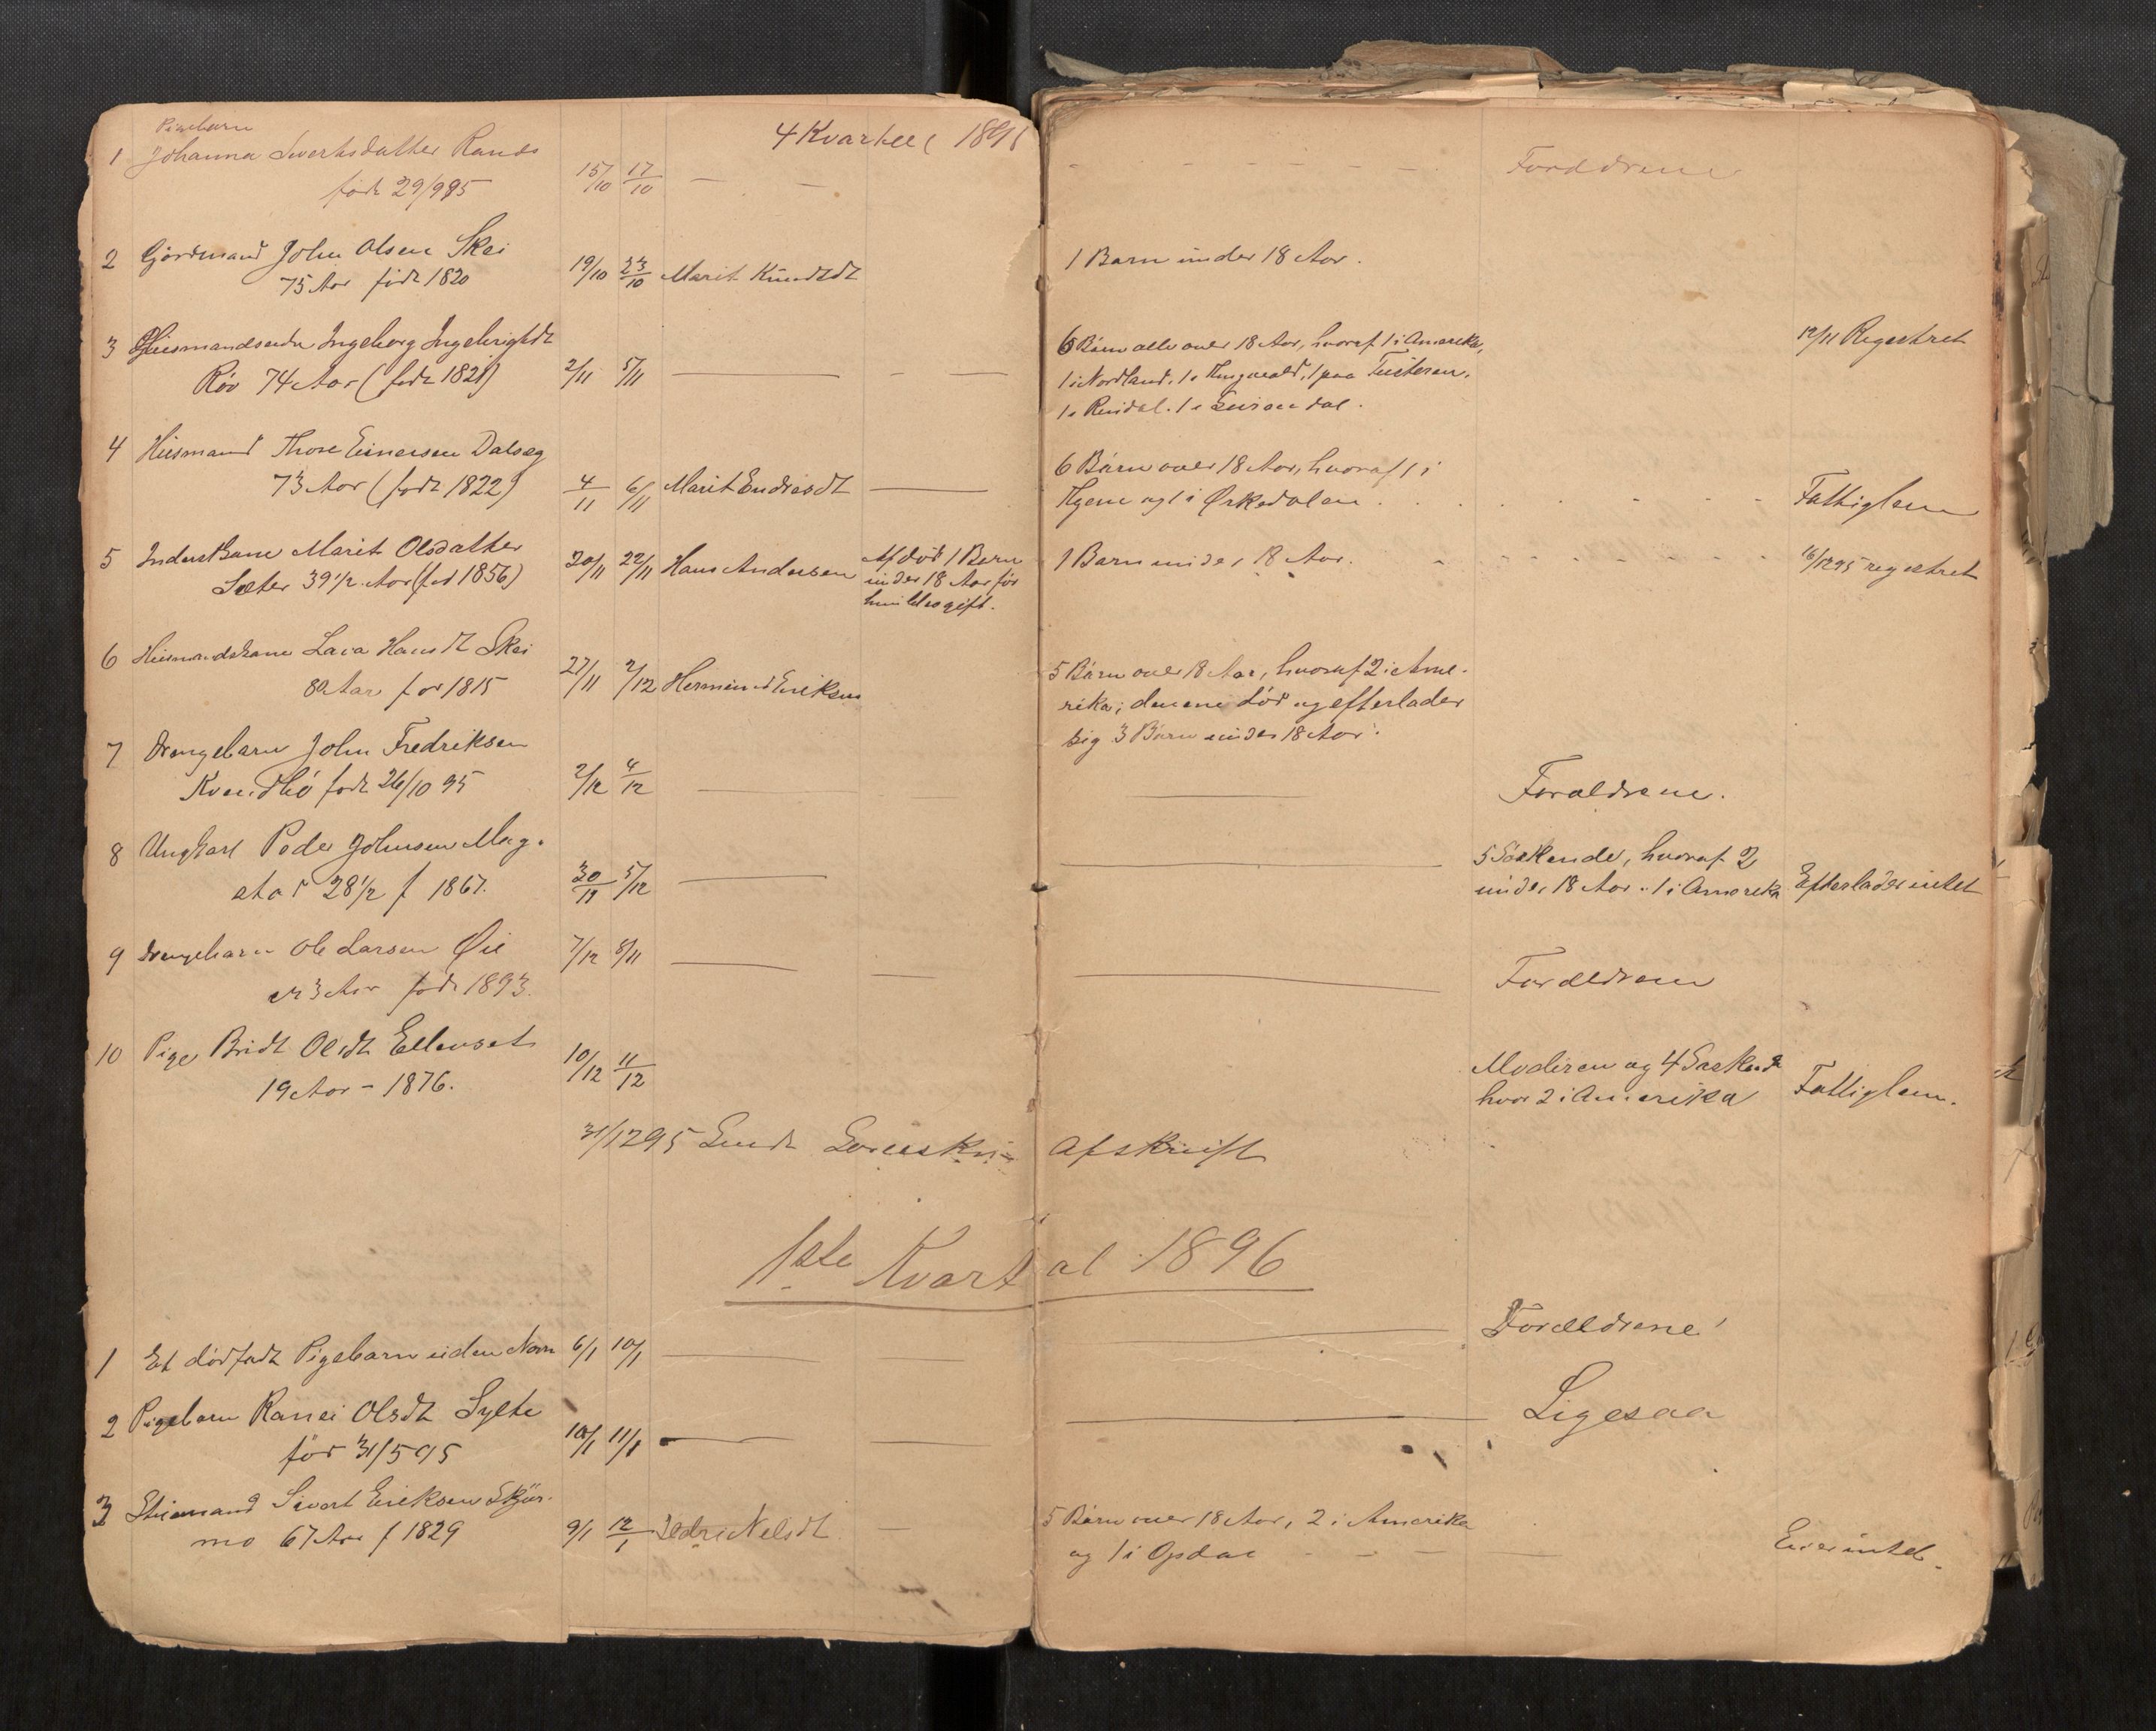 4 Kvartal 1895
Pigebarn
1 Johanna Sivertsdatter Rands
født 29/9 95 15/10 17/10 — — Forældrene
2 Gårdmand John Olsen Skei
75 Aar født 1820 19/10 23/10 Marit Knudsdt 1 Barn under 18 Aar.
3 Husmandsenke Ingeborg Ingebrigtsdt
Röv 74 Aar (født 1821) 2/11 5/11 — — —
6 Börn alle over 18 Aar, hvoraf 1 i Amerika,
1 i Nordland, 1 i Tingvold, 1 paa Tusteren,
1 i Rindal. 1 i Surendal.
12/11 Registret
4 Husmand Thore Einersen Dalseg
73 Aar (født 1822) 4/11 6/11 Marit Endresdt —
6 Börn over 18 Aar, hvoraf 1 i
Hjem og 1 i Ørkedalen . . . Fattiglem
5 Inderstkone Marit Olsdatter
Sæter 39 1/2 Aar (fød 1856) 20/11 22/11 Hans Andersen
Af död 1 Barn
under 18 Aar för
hun blev gift.
1 Barn under 18 Aar. 16/12 95 registret
6 Husmandskone Lava Hansdt Skei
80 Aar før 1815 27/11 2/12 Hermund Eriksen
5 Börn over 18 Aar, hvoraf 2 i Ame-
rika; den ene död og efterlader
sig 3 Börn under 18 Aar.
7 Drengebarn John Fredriksen
Kvendbö født 26/10 95 2/12 4/12 — — Forældrene.
8 Ungkarl Peder Johnsen Mog-
stad 28 1/2 f 1867. 30/11 5/12 — —
5 Söskende, hvoraf 2
under 18 Aar . 1 i Amerika Efterlader intet
9 Drengebarn Ole Larsen Øie
3 Aar født 1893. 7/12 8/11 — — — Forældrene
10 Pige Bridt Olsdt Ellevset
19 Aar - 1876. 10/12 11/12
Moderen og 4 Söskende
hvor 2 i Amerika Fattiglem.
31/12 95 Sendt Sorenskri- Afskrift
1ste Kvartal 1896
1 Et dödfødt Pigebarn uden Navn 6/1 10/1 — — — Forældrene
2 Pigebarn Ranei Olsdt Sylte
för 31/5 95 10/1 11/1 — — — Ligesaa
3 Sivert Eriksen Skjör-
mo 67 Aar f 1829 9/1 12/1 Nelsdt —
5 Börn over 18 Aar, 2 i Amerika
og 1 i Opdal - - - — Eier intet.